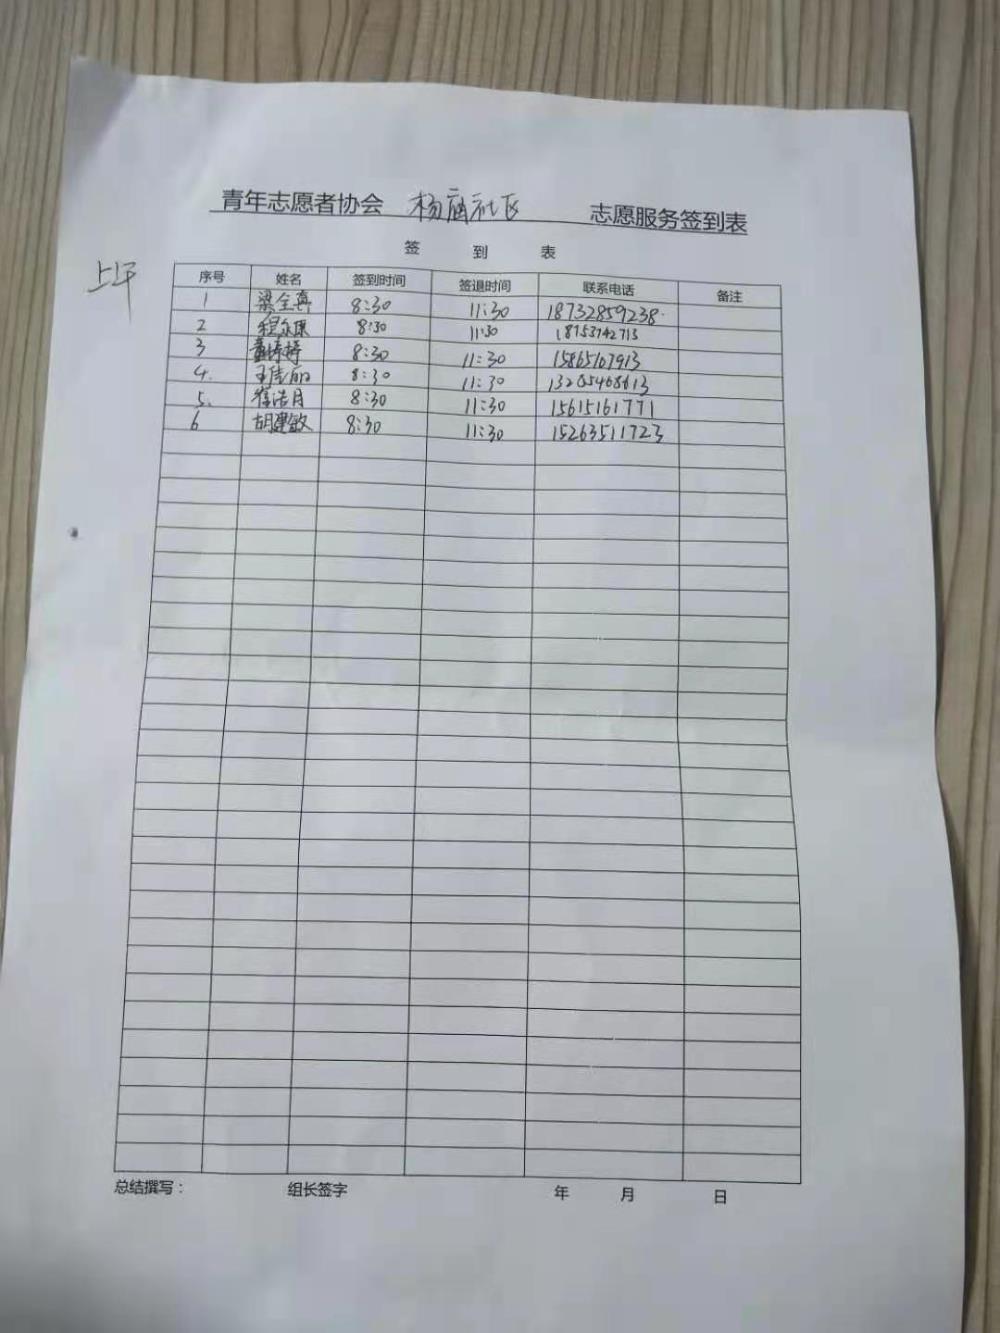 青年志愿者协会 杨庙社区 志愿服务签到表
签 到 表
上午
序号 姓名 签到时间 签退时间 联系电话 备注
1 梁全真 8:30 11:30 18732859238
2 程尔康 8:30 11:30 18753742715
3 8:30 11:30 15865167913
4. 王佳丽 8:30 11:30 13205468613
5. 崔洁月 8:30 11:30 15615161771
6 胡建敏 8:30 11:30 15263511723
总结撰写： 组长签字 年 月 日